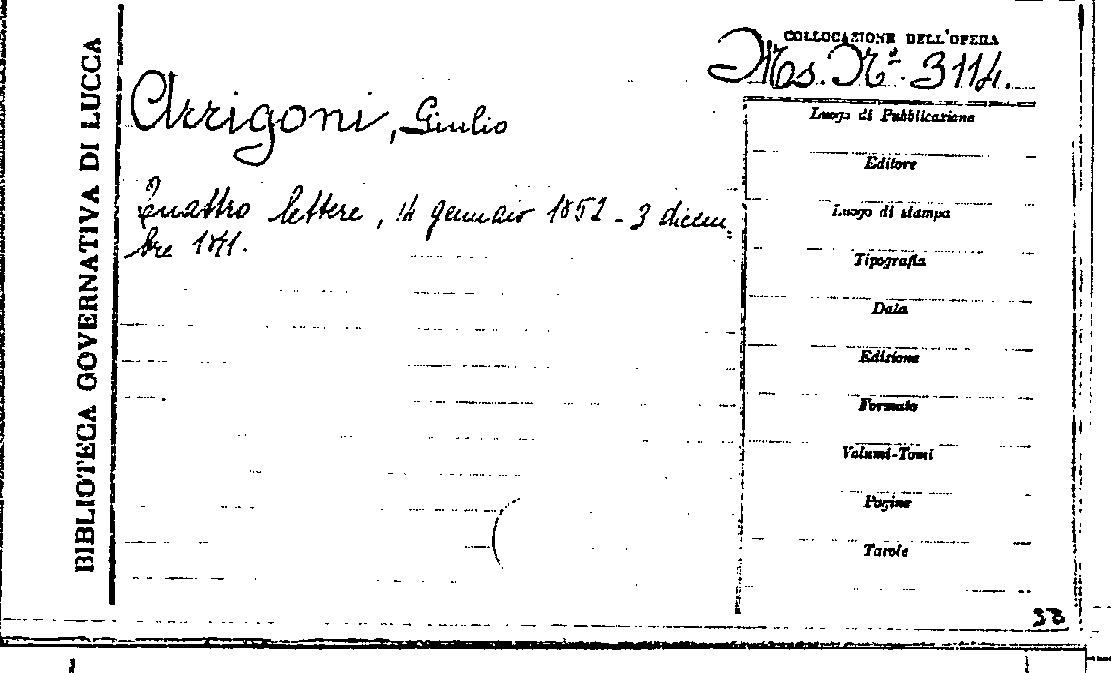 BIBLIOTECA GOVERNATIVA DI LUCCA
COLLOCAZIONE DELL'OPERA
Ms. N.º 3114.
Arrigoni, Giulio
Quattro lettere, 14 gennaio 1852 - 3 dicem
bre
Luogo di Pubblicazione
Editore
Luogo di stampa
Tipografia
Data
Edizione
Formato
Volumi-Tomi
Pagine
Tavole
33